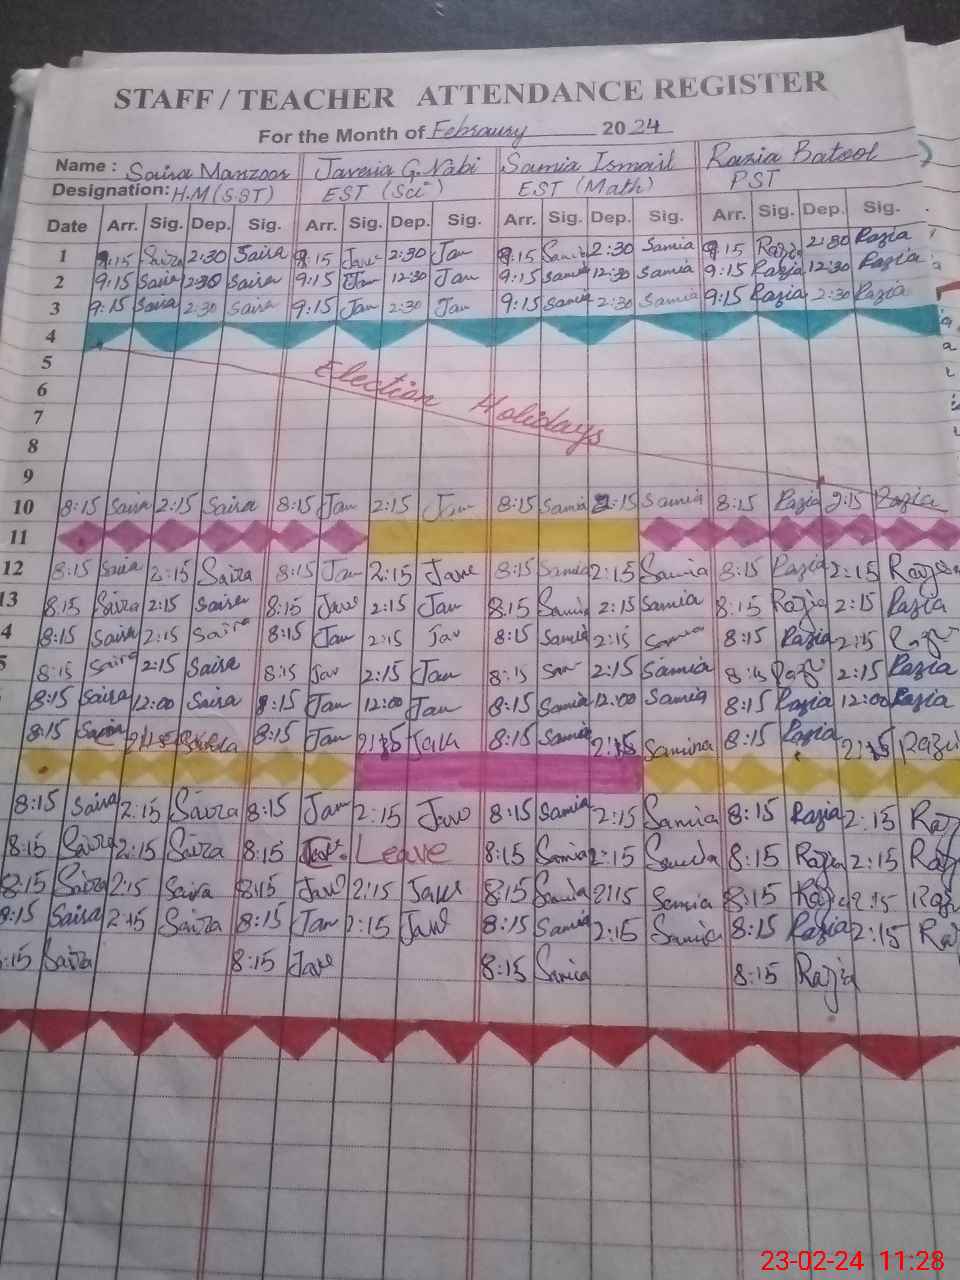 STAFF / TEACHER ATTENDANCE REGISTER
For the Month of Febraury 2024
Name : Saira Manzoor Javeria G.Nabi Samia Ismail Razia Batool
Designation: H.M (SST) EST (Sci) EST (Math) PST
Date Arr. Sig. Dep. Sig. Arr. Sig. Dep. Sig. Arr. Sig. Dep. Sig. Arr. Sig. Dep. Sig.
1 9:15 Saira 2:30 Saira 8:15 Jav 2:30 Jav 8:15 Samia 2:30 Samia 9:15 Razia 2:30 Razia
2 9:15 Saira 12:30 Saira 9:15 Jav 12:30 Jav 9:15 Samia 12:30 Samia 9:15 Razia 12:30 Razia
3 9:15 Saira 2:30 Saira 9:15 Jav 2:30 Jav 9:15 Samia 2:30 Samia 9:15 Razia 2:30 Razia
4
5
6 Election Holidays
7
8
9
10 8:15 Saira 2:15 Saira 8:15 Jav 2:15 Jav 8:15 Samia 2:15 Samia 8:15 Razia 2:15 Razia
11
12 8:15 Saira 2:15 Saira 8:15 Jav 2:15 Jave 8:15 Samia 2:15 Samia 8:15 Razia 2:15 Razia
13 8:15 Saira 2:15 Saira 8:15 Jave 2:15 Jav 8:15 Samia 2:15 Samia 8:15 Razia 2:15 Razia
4 8:15 Saira 2:15 Saira 8:15 Jav 2:15 Jav 8:15 Samia 2:15 Samia 8:15 Razia 2:15
5 8:15 Saira 2:15 Saira 8:15 Jav 2:15 Jav 8:15 Sam 2:15 Samia 8:15 2:15 Razia
8:15 Saira 12:00 Saira 8:15 Jav 12:00 Jav 8:15 Samia 12:00 Samia 8:15 Razia 12:00 Razia
8:15 Saira 2:15 Saira 8:15 Jav 2:15 Java 8:15 Samia 2:15 Samina 8:15 Razia 2:15 Razi
8:15 Saira 2:15 Saira 8:15 Jav 2:15 Jave 8:15 Samia 2:15 Samia 8:15 Razia 2:15 Raz
8:15 Saira 2:15 Saira 8:15 Leave 8:15 Samia 2:15 Samia 8:15 Razia 2:15 Raz
8:15 Saira 2:15 Saira 8:15 Jave 2:15 Jave 8:15 Samia 2:15 Samia 8:15 Razia 2:15 Raz
8:15 Saira 2:15 Saira 8:15 Jav 2:15 Jave 8:15 Samia 2:15 Samia 8:15 Razia 2:15 Ra
:15 Saira 8:15 Jave 8:15 Samia 8:15 Razia
23-02-24 11:28